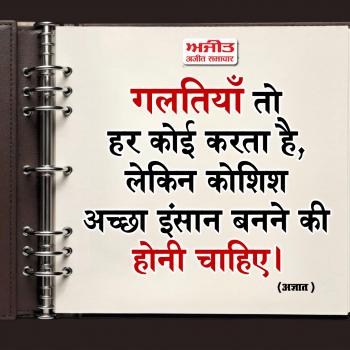 ਅਜੀਤ
अजीत समाचार
गलतियाँ तो
हर कोई करता है,
लेकिन कोशिश
अच्छा इंसान बनने की
होनी चाहिए।
(अज्ञात )